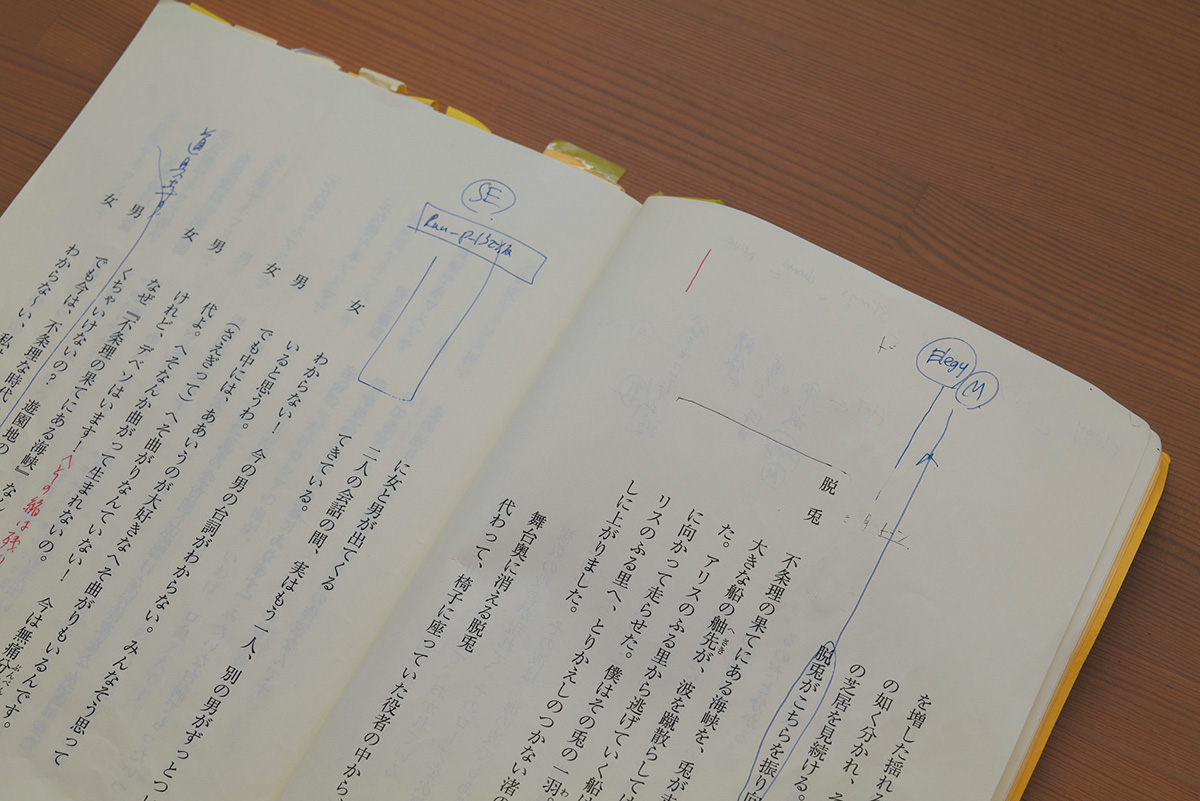 Elegy
M
を増した揺れ
の如く分かれ、そ
の芝居を見続ける。
脱兎がこちらを振り向
脱兎
不条理の果てにある海峡を、兎が
大きな船の舳先が、波を蹴散らしては
へさき
た。アリスのふる里から逃げていく船
に向かって走らせた。僕はその兎の一羽。
わ
リスのふる里へ、とりかえしのつかない渚の
しに上がりました。
舞台奥に消える脱兎
代わって、椅子に座っていた役者の中から
SE
に女と男が出てくる
二人の会話の間、実はもう一人、別の男がずっとつ
てきている。
女 わからない！ 今の男の台詞がわからない。みんなそう思って
いると思うわ。
男 でも中には、ああいうのが大好きなへそ曲がりもいるんです。
女 (さえぎって) へそ曲がりなんていない！ 今は無痛分
ぶんべん
代よ。へそなんか曲がって生まれないの。
男 けれど、デベソはいます！
へその緒は残り
女 なぜ『不条理の果てにある海峡』
くちゃいけないの？ 遊園地の
男 でも今は、不条理な時代
女 わからな〜い、私